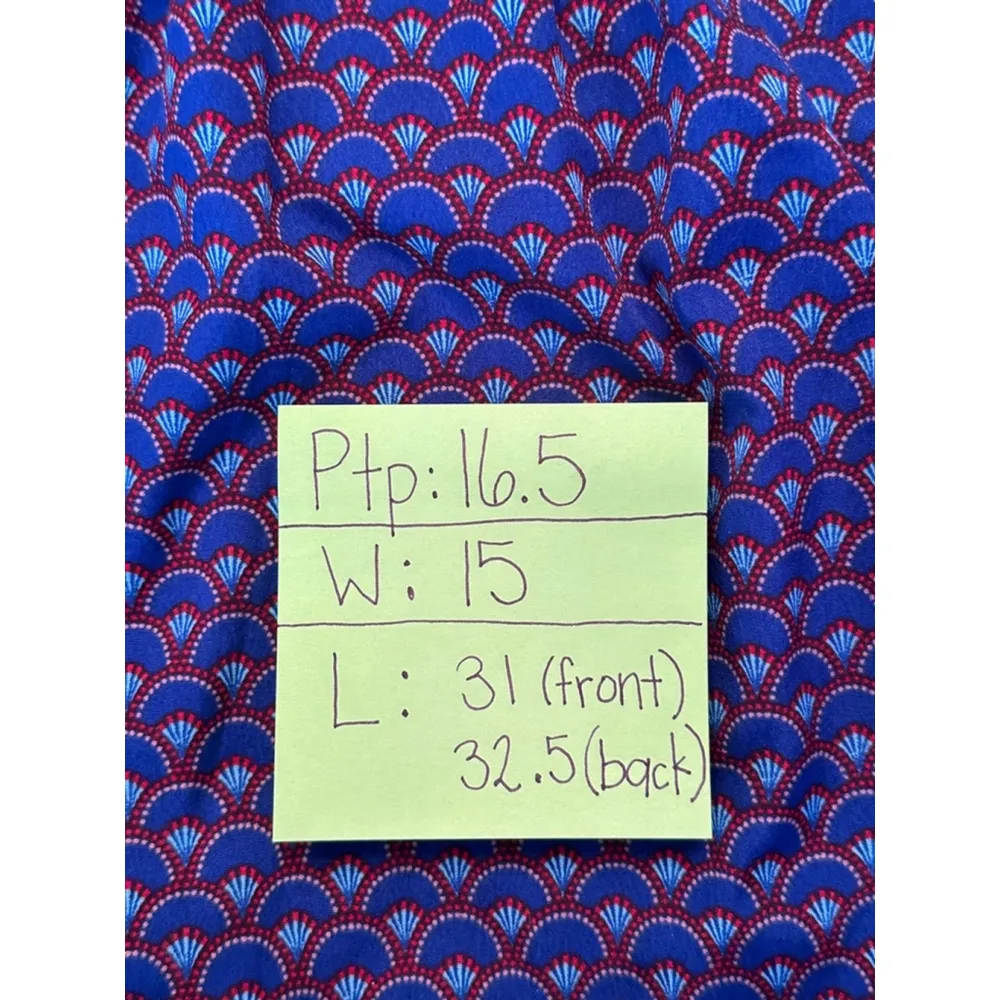 Ptp: 16.5
W: 15
L: 31 (front)
32.5 (back)